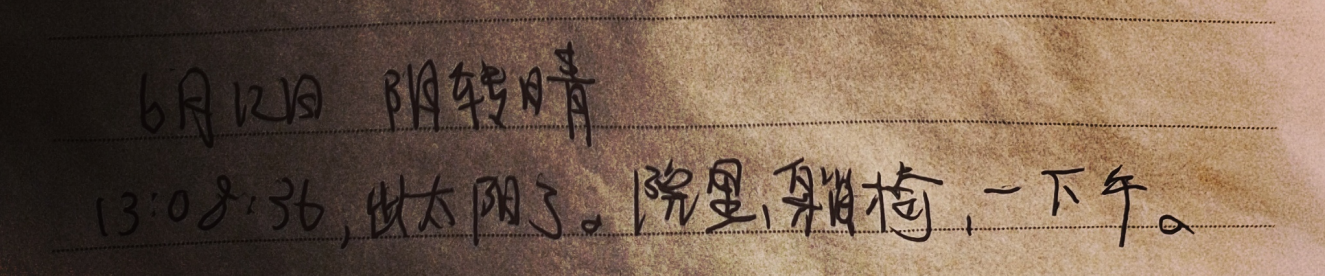 6月12日 阴转晴
13:08:36,出太阳了。院里,躺椅,一下午。